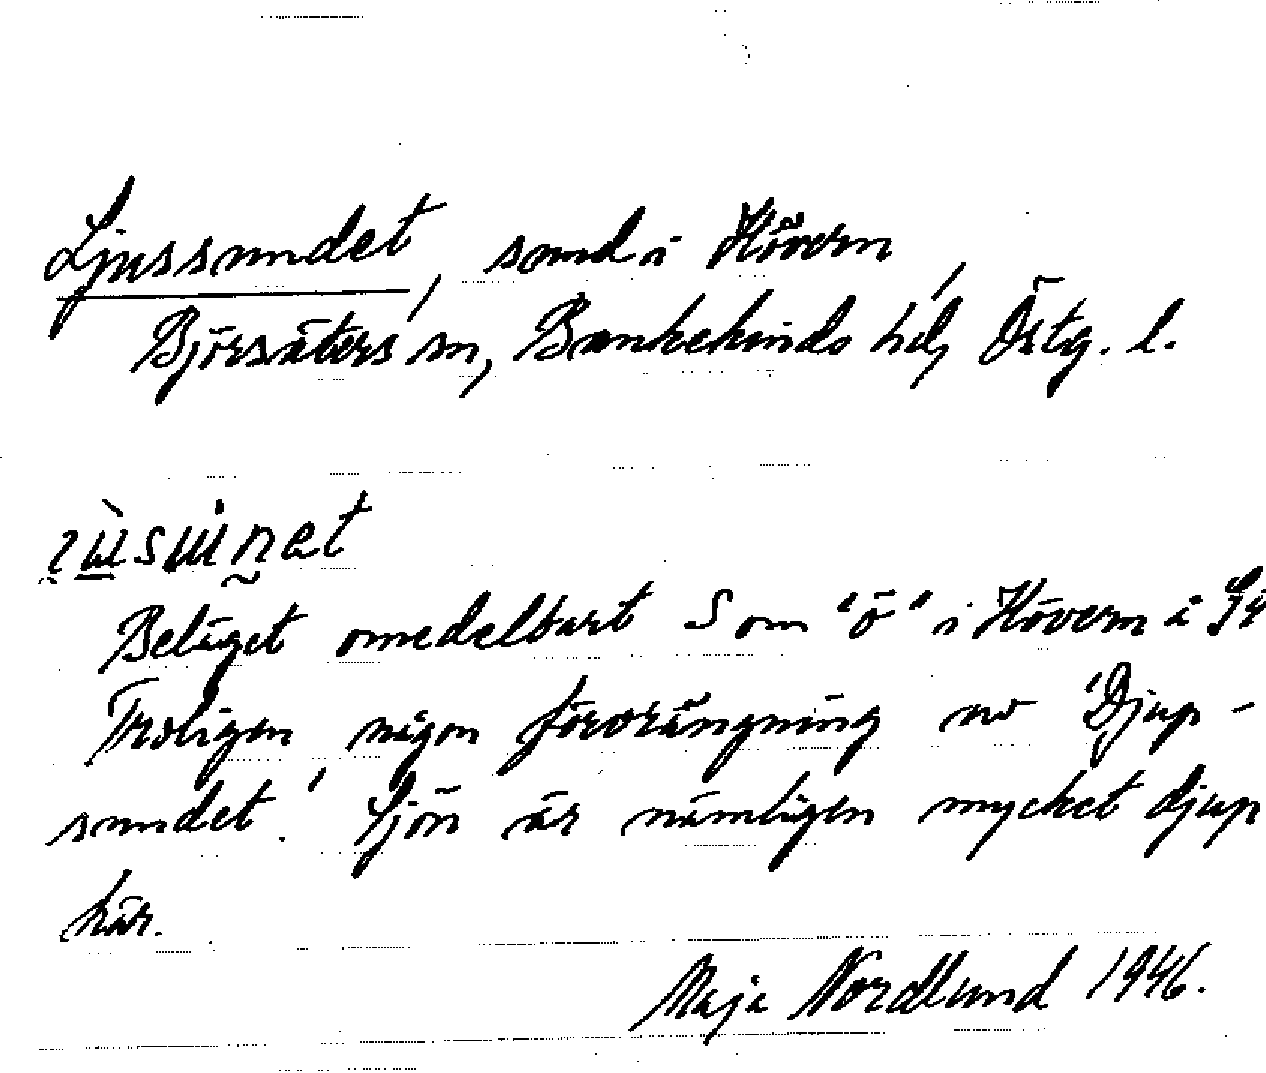 Ljussundet, sund i Hövern
Björsäters sn, Bankekinds hd, Östg. l.
Beläget omedelbart S om "ö" i Hövern å
Troligen någon förvrängning av 'Djup-
sundet.' Sjön är nämligen mycket djup
här.
Maja Nordlund 1946.